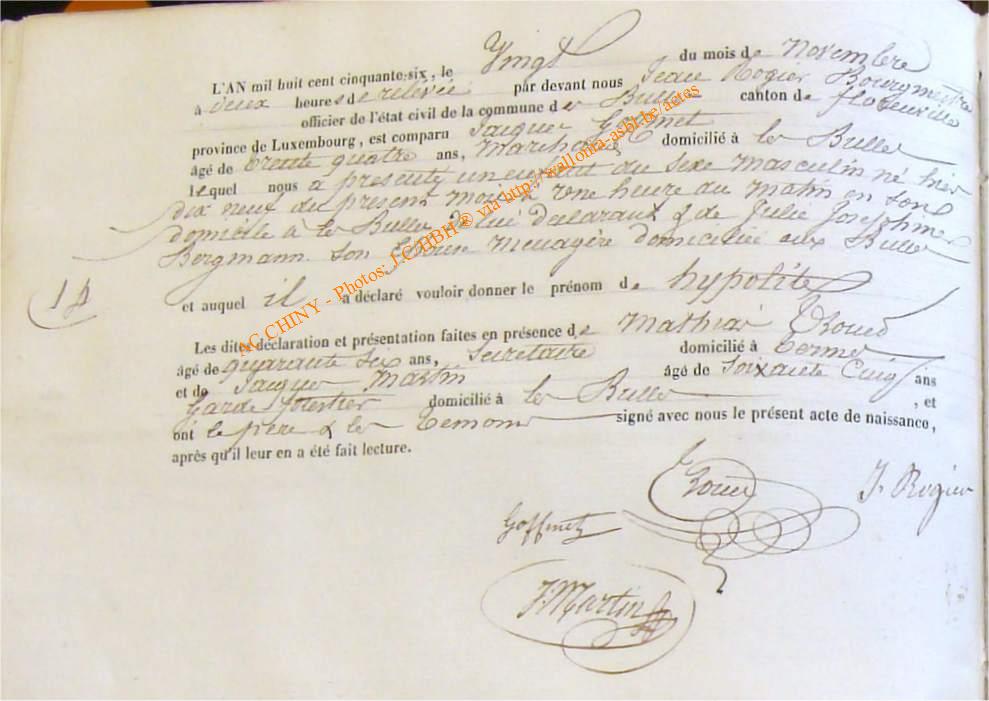 L'AN mil huit cent cinquante-six, le Vingt du mois de novembre
à deux heures de relevée par devant nous Jean Rogier Bourgmestre
officier de l'état civil de la commune des Bulles canton de florenville
province de Luxembourg, est comparu Jacques Goffinet
âgé de trente quatre ans, Marchand domicilié à les Bulles
lequel nous a présenté un enfant du sexe masculin né hier
dix neuf du présent mois à une heure du matin en son
domicile à les Bulles de lui déclarant & de Julie Josephine
Bergmann son Epouse Menagère domiciliée aux Bulles
14
et auquel il a déclaré vouloir donner le prénom de hypolite
Les dites déclaration et présentation faites en présence de Mathias
âgé de quarante six ans, Secretaire domicilié à termes
et de Jacques Martin âgé de soixante Cinq ans
Garde forestier domicilié à les Bulles, et
ont le père & les temoins signé avec nous le présent acte de naissance,
après qu'il leur en a été fait lecture.
J. Rogier
Goffinet
J. Martin
AC CHINY - Photos: J.C. HBH ® via http://wallonia-asbl.be/actes